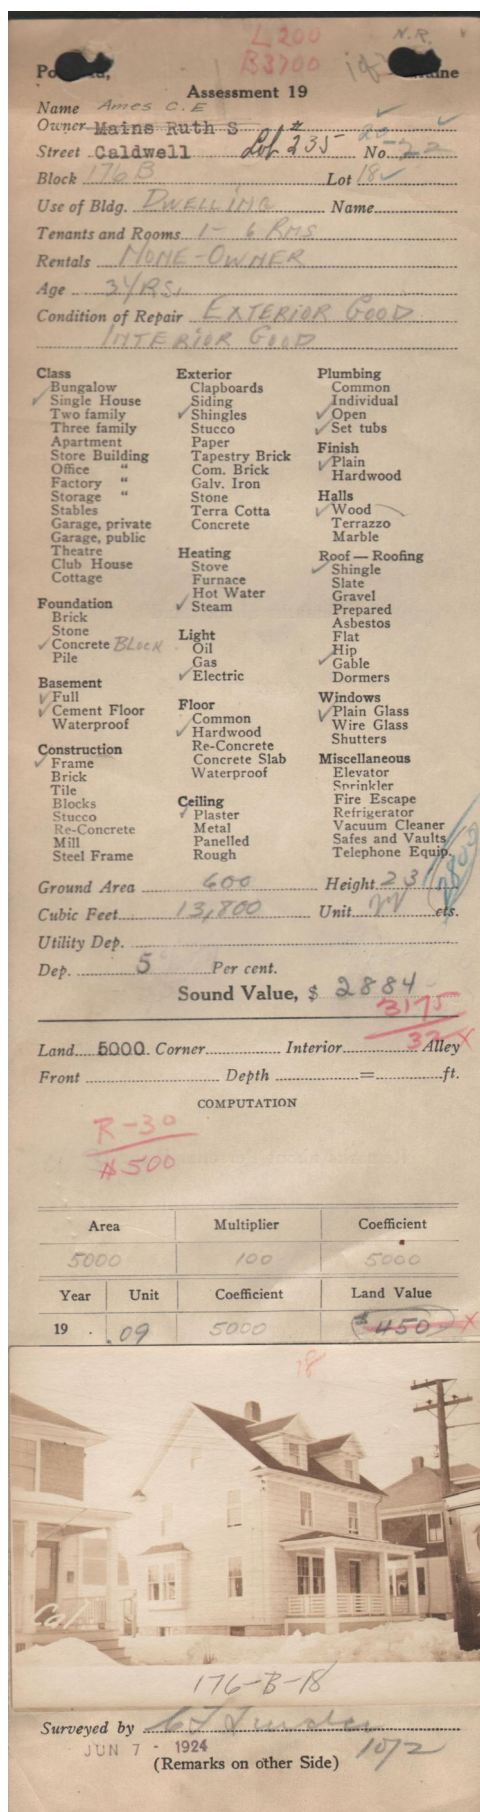 L 200 N.R.
B3700
Po aine
Assessment 19
Name Ames C. E
Owner Maine Ruth S
Street Caldwell Lot # 235 No 20-22
Block 176 B Lot 18
Use of Bldg. DWELLING Name
Tenants and Rooms 1 - 6 RMS
Rentals HOME-OWNER
Age 3 YRS.
Condition of Repair EXTERIOR GOOD
INTERIOR GOOD
Class
Bungalow
Single House
Two family
Three family
Apartment
Store Building
Office "
Factory "
Storage "
Stables
Garage, private
Garage, public
Theatre
Club House
Cottage
Foundation
Brick
Stone
Concrete BLOCK
Pile
Basement
Full
Cement Floor
Waterproof
Construction
Frame
Brick
Tile
Blocks
Stucco
Re-Concrete
Mill
Steel Frame
Exterior
Clapboards
Siding
Shingles
Stucco
Paper
Tapestry Brick
Com. Brick
Galv. Iron
Stone
Terra Cotta
Concrete
Heating
Stove
Furnace
Hot Water
Steam
Light
Oil
Gas
Electric
Floor
Common
Hardwood
Re-Concrete
Concrete Slab
Waterproof
Ceiling
Plaster
Metal
Panelled
Rough
Plumbing
Common
Individual
Open
Set tubs
Finish
Plain
Hardwood
Halls
Wood
Terrazzo
Marble
Roof — Roofing
Shingle
Slate
Gravel
Prepared
Asbestos
Flat
Hip
Gable
Dormers
Windows
Plain Glass
Wire Glass
Shutters
Miscellaneous
Elevator
Sprinkler
Fire Escape
Refrigerator
Vacuum Cleaner
Safes and Vaults
Telephone Equip.
2800
Ground Area 600 Height 23
Cubic Feet 13,800 Unit 22 cts.
Utility Dep.
Dep. 5 Per cent.
Sound Value, $ 2884
3175
Land 5000 Corner Interior Alley
Front Depth = ft.
COMPUTATION
R-30
$500
Area Multiplier Coefficient
5000 100 5000
Year Unit Coefficient Land Value
19 .09 5000 $450
18
Cal
176-B-18
Surveyed by
JUN 7 - 1924 10/2
(Remarks on other Side)